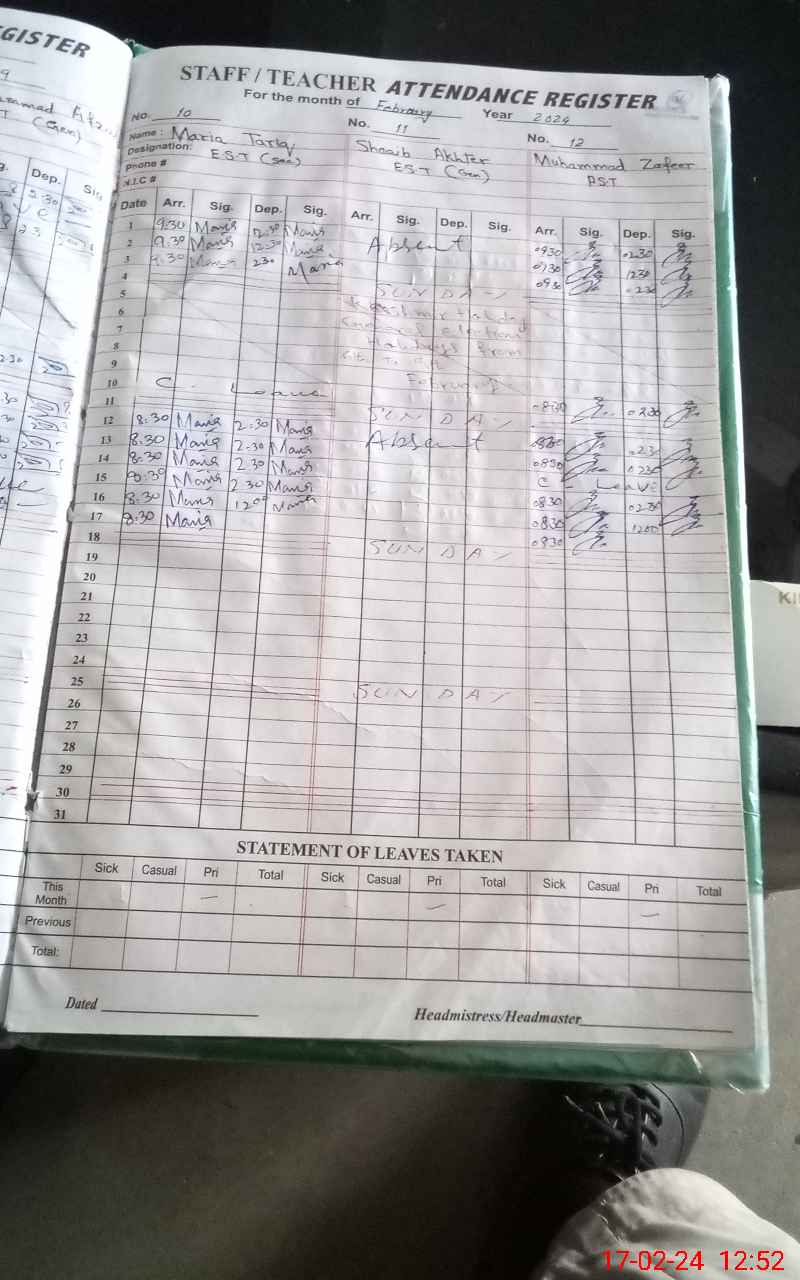 EGISTER
STAFF / TEACHER ATTENDANCE REGISTER
For the month of February Year 2024
No. 10 No. 11 No. 12
Name: Maria Tariq Shoaib Akhter Muhammad Zafeer
Designation: E.S.T (Gen) EST (Gen) PST
Phone #
N.I.C #
Date Arr. Sig. Dep. Sig. Arr. Sig. Dep. Sig. Arr. Sig. Dep. Sig.
1 9:30 Maria 12:30 Maria Absent 0930 0230
2 9:30 Maria 12:30 Maria 0930 1230
3 9:30 Maria 230 Maria 0930 0230
4 SUNDAY
5 Kashmir
6 General election
7 Holidays from
8
9 February
10 C. Leave 0830 0230
11 SUNDAY
12 8:30 Maria 2:30 Maria Absent 0830 0230
13 8:30 Maria 2:30 Maria 0830 0230
14 8:30 Maria 2 30 Maria C Leave
15 8:30 Maria 2 30 Maria 0830 0230
16 8:30 Maria 1200 Maria 0830 1200
17 8:30 Maria 0830
18 SUNDAY
19
20
21
22
23
24
25 SUNDAY
26
27
28
29
30
31
STATEMENT OF LEAVES TAKEN
Sick Casual Pri Total Sick Casual Pri Total Sick Casual Pri Total
This Month — — —
Previous
Total:
Dated Headmistress/Headmaster
KI
17-02-24 12:52